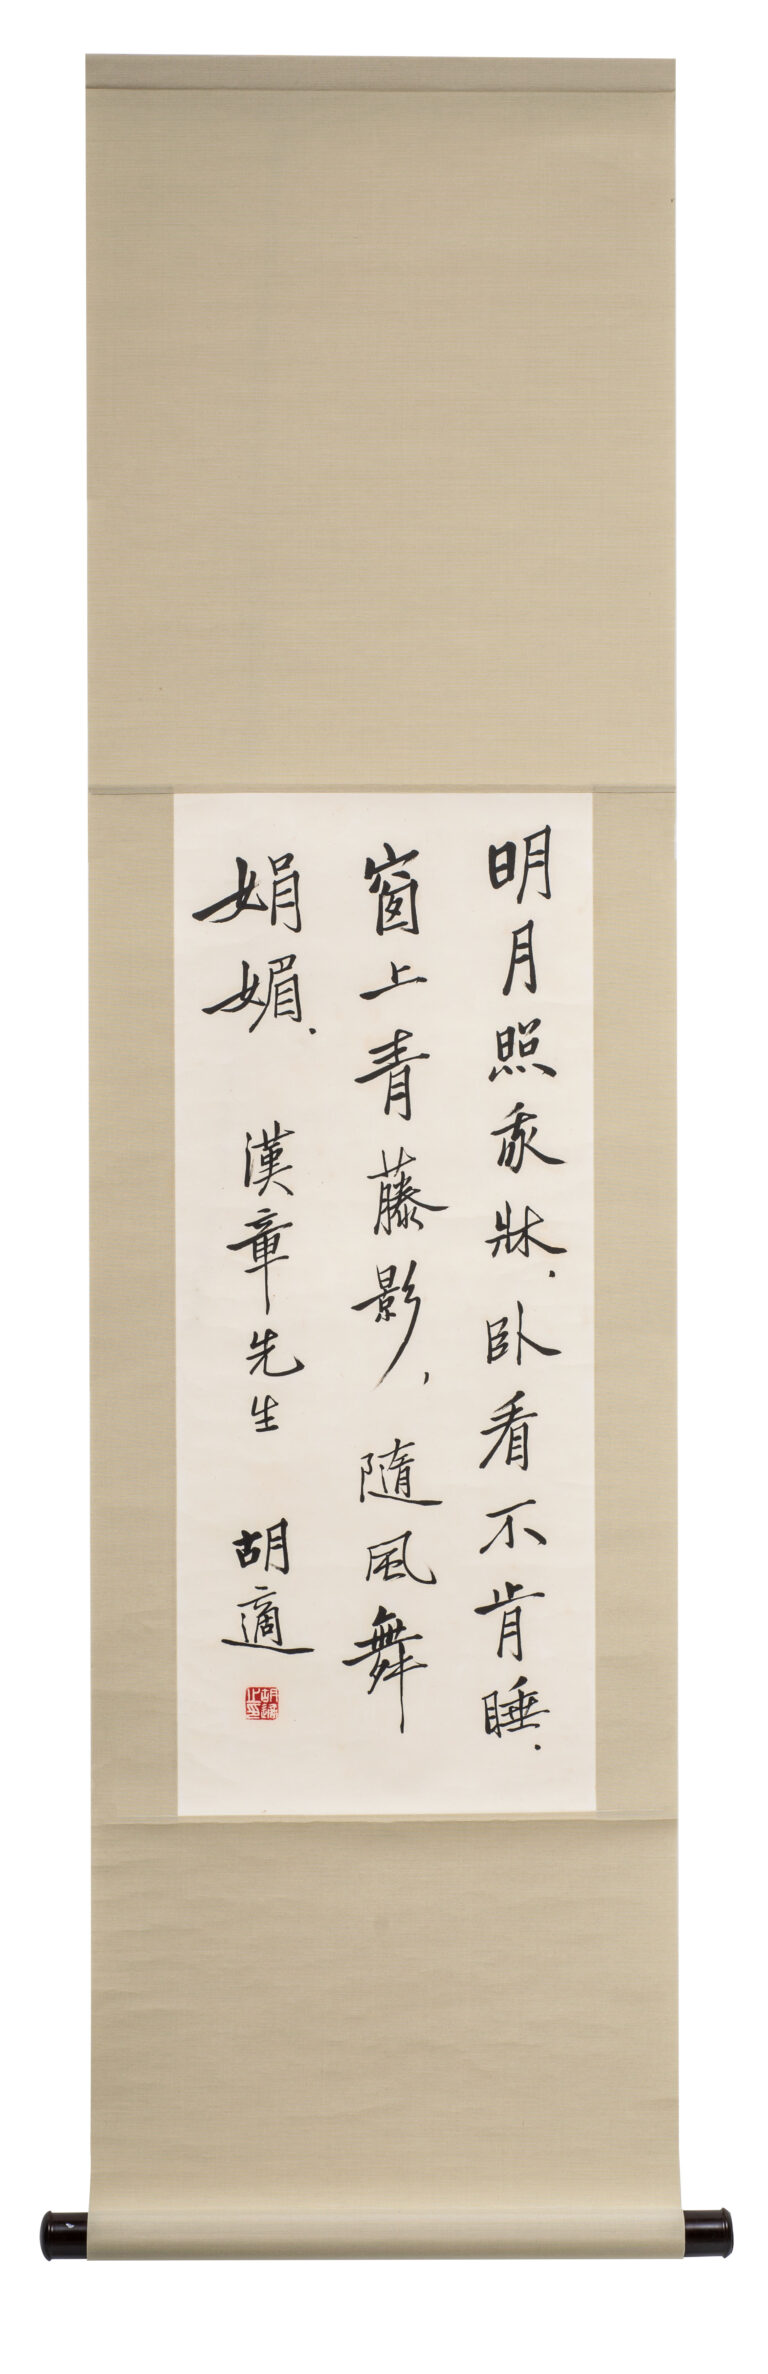 明月照我牀．卧看不肯睡．
窗上青藤影，隨風舞
娟媚．　漢章先生　胡適
胡適之印